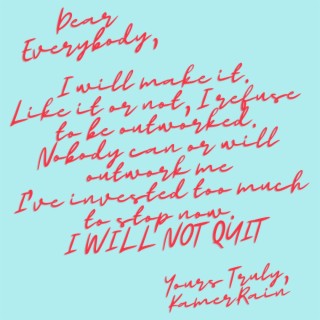 Dear
Everybody,
I will make it.
Like it or not, I refuse
to be outworked.
Nobody can or will
outwork me
I've invested too much
to stop now.
I WILL NOT QUIT
Yours Truly,
KamerRain